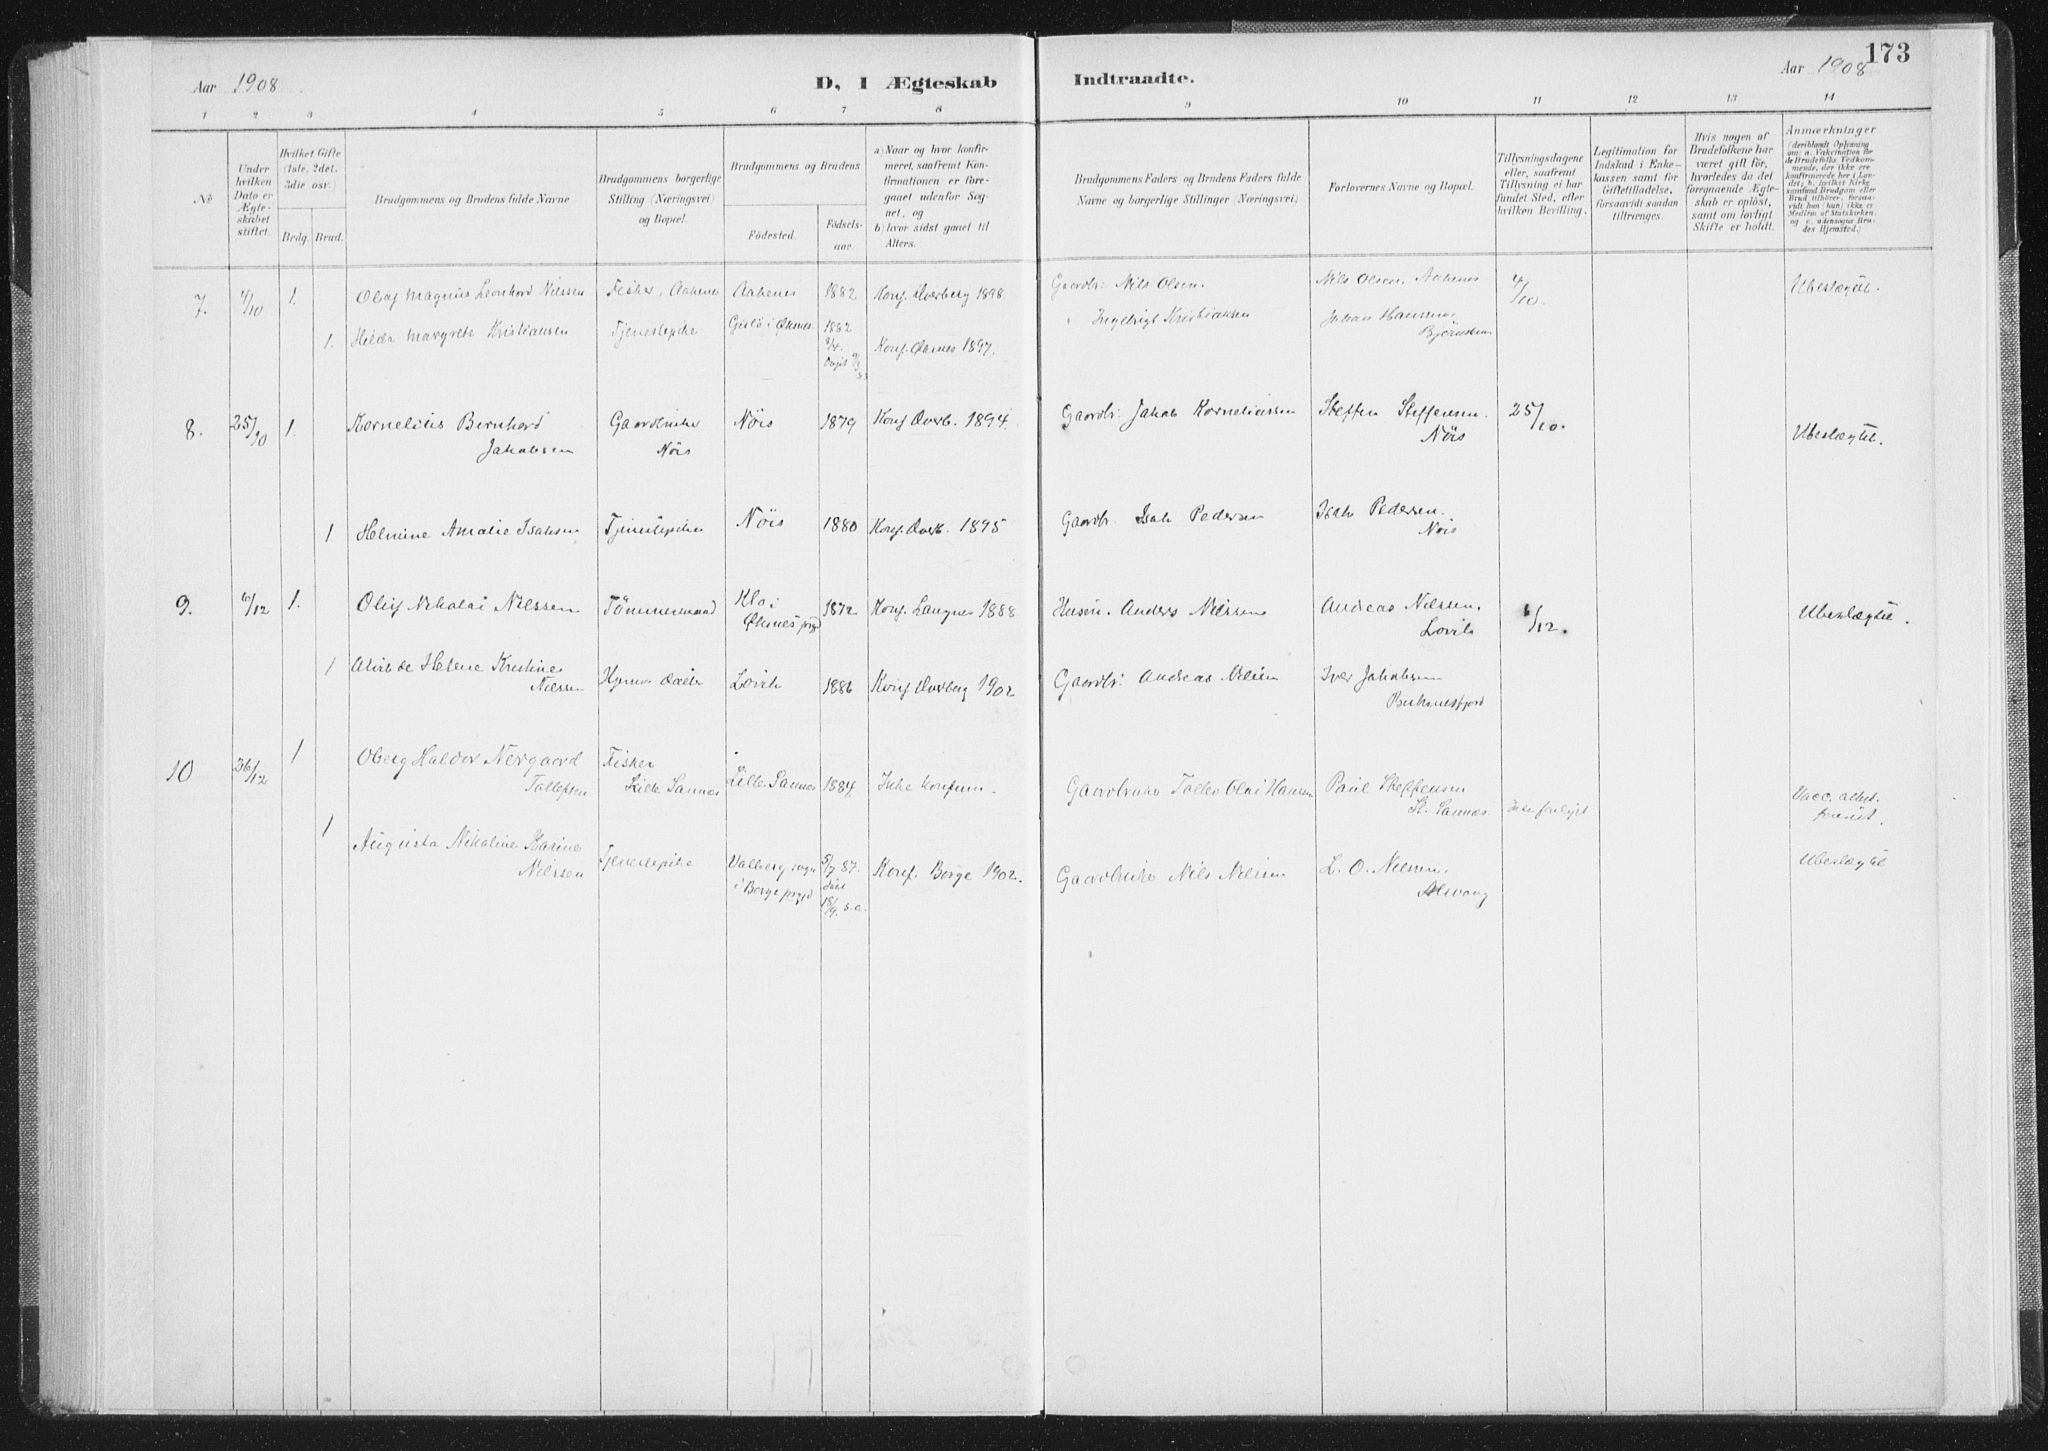 173
Aar 1908
D, I Ægteskab Indtraadte.
Aar 1908
1 2 3 4 5 6 7 8 9 10 11 12 13 14
No
Under hvilken Dato er Ægteskabet stiftet.
Hvilket Gifte (1ste, 2det, 3die osv.)
Brdg. Brud.
Brudgommens og Brudens fulde Navne
Brudgommens borgerlige Stilling (Næringsvei) og Bopæl.
Brudgommens og Brudens
Fødested.
Fødselsaar.
a) Naar og hvor konfirmeret, saafremt Konfirmationen er foregaaet udenfor Sognet, og
b) hvor sidst gaaet til Alters.
Brudgommens Faders og Brudens Faders fulde Navne og borgerlige Stillinger (Næringsvei)
Forlovernes Navne og Bopæl.
Tillysningsdagene eller, saafremt Tillysning ei har fundet Sted, efter hvilken Bevilling.
Legitimation for Indskud i Enkekassen samt for Giftetilladelse, forsaavidt saadan tiltrænges.
Hvis nogen af Brudefolkene har været gift før, hvorledes da det foregaaende Ægteskab er opløst, samt om lovligt Skifte er holdt.
Anmærkninger (deriblandt Oplysning om: a. Vaccination for de Brudefolks Vedkommende, der ikke ere konfirmerede her i Landet; b. hvilket Kirkesamfund Brudgom eller Brud tilhører, forsaavidt han (hun) ikke er Medlem af Statskirken; og c. udensogns Brudes Hjemsted.)
7. 4/10 1. Olaf Magnus Leonhard Nilssen Fisker, Aakenes Aakenes 1882 Konf. Dverberg 1898. Gaardbr: Nils Olsen. Nils Olsen, Aakenes 4/10. Ubeslægtet.
1. Hilda Margrete Kristiansen Tjenestepike Gislø i Øksnes 1882 Konf. Øksnes 1897. Ingebrigt Kristiansen Johan Hansen,
8. 25/10 1. Kornelius Bernhard Jakobsen Gaardbruker Nöis Nöis 1879 Konf. Dverb. 1894. Gaardbr. Jakob Korneliussen Steffen Steffensen. Nöis 25/10. Ubeslægtet.
1. Helmine Amalie Isaksen Tjenestepike Nöis 1880 Konf. Dverb. 1895 Gaardbr. Isak Pedersen Isak Pedersen. Nöis
9. 6/12 1. Oluf Nikolai Nilssen Tömmermand Klo i Øksnes prgd 1872 Konf. Langnes 1888 Husm. Anders Nilssen Andreas Nilssen, Lovik 6/12. Ubeslægtet.
1 Alvilde Helene Kristine Nilssen Lovik 1886 Konf. Dverberg 1902 Gaardbr: Andreas Nilsen Iver Jakobsen Buknesfjord
10 26/12 1 Oberg Haldor Nergaard Tollefsen Fisker Lille Sannes Lille Sannes 1884 Ikke konfirm. Gaardbruker Tollef Olai Hansen Paul Steffensen St. Sannes. Vacc. attest
1 Augusta Nikoline Karine Nilssen Tjenestepike Valberg sogn i Borge prgd 5/7 87. døbt 18/9. s.a. Konf. Borge 1902. Gaardbruker Nils Nilsen L. O. Nilssen, Alsvaag Ubeslægtet